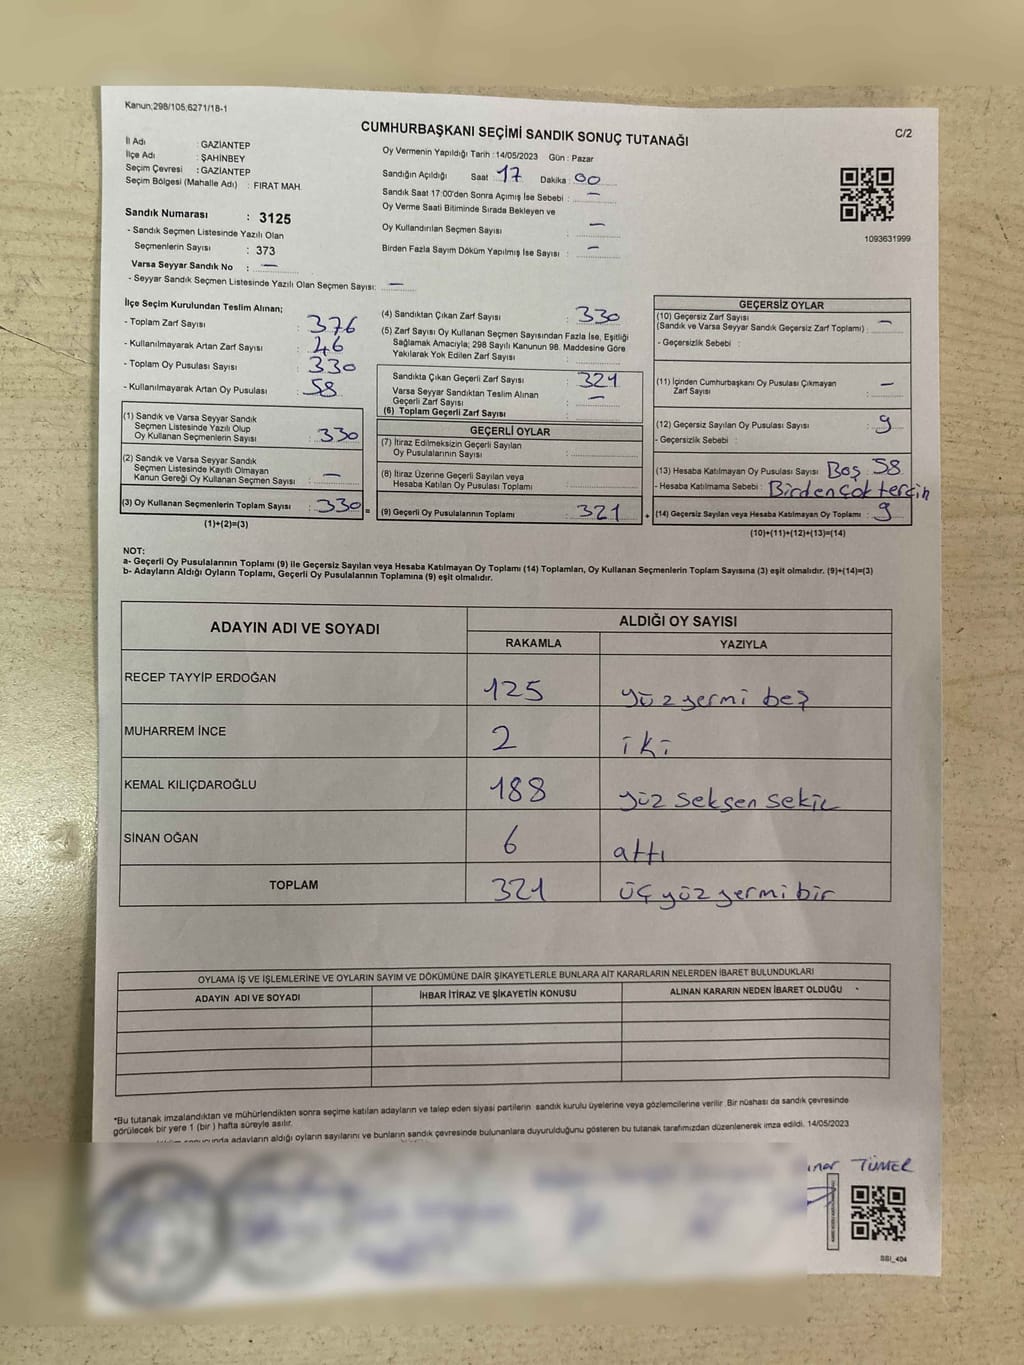 Kanun;298/105,6271/18-1
CUMHURBAŞKANI SEÇİMİ SANDIK SONUÇ TUTANAĞI
C/2
İl Adı : GAZİANTEP
İlçe Adı : ŞAHİNBEY
Seçim Çevresi : GAZİANTEP
Seçim Bölgesi (Mahalle Adı) : FIRAT MAH.
Sandık Numarası : 3125
- Sandık Seçmen Listesinde Yazılı Olan
Seçmenlerin Sayısı : 373
Varsa Seyyar Sandık No : —
- Seyyar Sandık Seçmen Listesinde Yazılı Olan Seçmen Sayısı: —
Oy Vermenin Yapıldığı Tarih :14/05/2023 Gün : Pazar
Sandığın Açıldığı Saat : 17 Dakika : 00
Sandık Saat 17:00'den Sonra Açımış İse Sebebi : —
Oy Verme Saati Bitiminde Sırada Bekleyen ve
Oy Kullandırılan Seçmen Sayısı : —
Birden Fazla Sayım Döküm Yapılmış İse Sayısı : —
1093631999
İlçe Seçim Kurulundan Teslim Alınan;
- Toplam Zarf Sayısı : 376
- Kullanılmayarak Artan Zarf Sayısı : 46
- Toplam Oy Pusulası Sayısı : 330
- Kullanılmayarak Artan Oy Pusulası : 58
(1) Sandık ve Varsa Seyyar Sandık
Seçmen Listesinde Yazılı Olup
Oy Kullanan Seçmenlerin Sayısı : 330
(2) Sandık ve Varsa Seyyar Sandık
Seçmen Listesinde Kayıtlı Olmayan
Kanun Gereği Oy Kullanan Seçmen Sayısı : —
(3) Oy Kullanan Seçmenlerin Toplam Sayısı : 330 =
(1)+(2)=(3)
(4) Sandıktan Çıkan Zarf Sayısı : 330
(5) Zarf Sayısı Oy Kullanan Seçmen Sayısından Fazla İse, Eşitliği
Sağlamak Amacıyla; 298 Sayılı Kanunun 98. Maddesine Göre
Yakılarak Yok Edilen Zarf Sayısı :
Sandıkta Çıkan Geçerli Zarf Sayısı : 321
Varsa Seyyar Sandıktan Teslim Alınan
Geçerli Zarf Sayısı : —
(6) Toplam Geçerli Zarf Sayısı :
GEÇERLİ OYLAR
(7) İtiraz Edilmeksizin Geçerli Sayılan
Oy Pusulalarının Sayısı :
(8) İtiraz Üzerine Geçerli Sayılan veya
Hesaba Katılan Oy Pusulası Toplamı :
(9) Geçerli Oy Pusulalarının Toplamı : 321 +
GEÇERSİZ OYLAR
(10) Geçersiz Zarf Sayısı
(Sandık ve Varsa Seyyar Sandık Geçersiz Zarf Toplamı) : —
- Geçersizlik Sebebi :
(11) İçinden Cumhurbaşkanı Oy Pusulası Çıkmayan
Zarf Sayısı : —
(12) Geçersiz Sayılan Oy Pusulası Sayısı : 9
- Geçersizlik Sebebi :
(13) Hesaba Katılmayan Oy Pusulası Sayısı : Boş 58
- Hesaba Katılmama Sebebi : Birden çok tercih
(14) Geçersiz Sayılan veya Hesaba Katılmayan Oy Toplamı : 9
(10)+(11)+(12)+(13)=(14)
NOT:
a- Geçerli Oy Pusulalarının Toplamı (9) ile Geçersiz Sayılan veya Hesaba Katılmayan Oy Toplamı (14) Toplamları, Oy Kullanan Seçmenlerin Toplam Sayısına (3) eşit olmalıdır. (9)+(14)=(3)
b- Adayların Aldığı Oyların Toplamı, Geçerli Oy Pusulalarının Toplamına (9) eşit olmalıdır.
ADAYIN ADI VE SOYADI
ALDIĞI OY SAYISI
RAKAMLA YAZIYLA
RECEP TAYYİP ERDOĞAN 125 yüz yermi beş
MUHARREM İNCE 2 iki
KEMAL KILIÇDAROĞLU 188 yüz seksen sekiz
SİNAN OĞAN 6 altı
TOPLAM 321 üç yüz yermi bir
OYLAMA İŞ VE İŞLEMLERİNE VE OYLARIN SAYIM VE DÖKÜMÜNE DAİR ŞİKAYETLERLE BUNLARA AİT KARARLARIN NELERDEN İBARET BULUNDUKLARI
ADAYIN ADI VE SOYADI İHBAR İTİRAZ VE ŞİKAYETİN KONUSU ALINAN KARARIN NEDEN İBARET OLDUĞU
*Bu tutanak imzalandıktan ve mühürlendikten sonra seçime katılan adayların ve talep eden siyasi partilerin sandık kurulu üyelerine veya gözlemcilerine verilir .Bir nüshası da sandık çevresinde
görülecek bir yere 1 (bir ) hafta süreyle asılır.
adayların aldığı oyların sayılarını ve bunların sandık çevresinde bulunanlara duyurulduğunu gösteren bu tutanak tarafımızdan düzenlenerek imza edildi. 14/05/2023
TÜMER
SSI_404